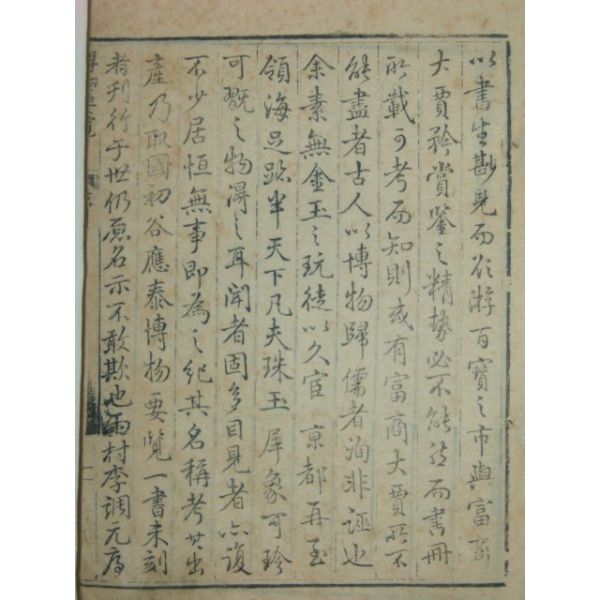 以書生尠見而欲游百寶之市與富商
大賈矜賞鑒之精勢必不能然而書冊
所載可考而知則或有富商大賈所不
能盡者古人以博物歸儒者洵非誣也
余素無金玉之玩徒以久宦京都再至
領海足跡半天下凡夫珠玉犀象可珍
可翫之物得之耳聞者固多目見者亦復
不少居恒無事即為之紀其名稱考其出
產乃取國初谷應泰博物要覽一書未刻
者刊行于世仍原名示不敢欺也雨村李調元序